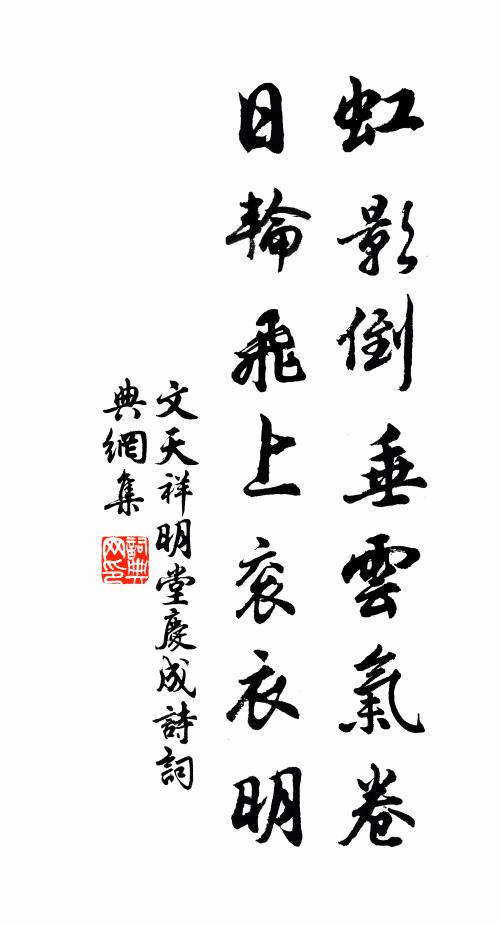 虹影倒垂雲氣卷
日輪飛上衮衣明
文天祥明堂慶成詩詞
典網集
詞典
网印